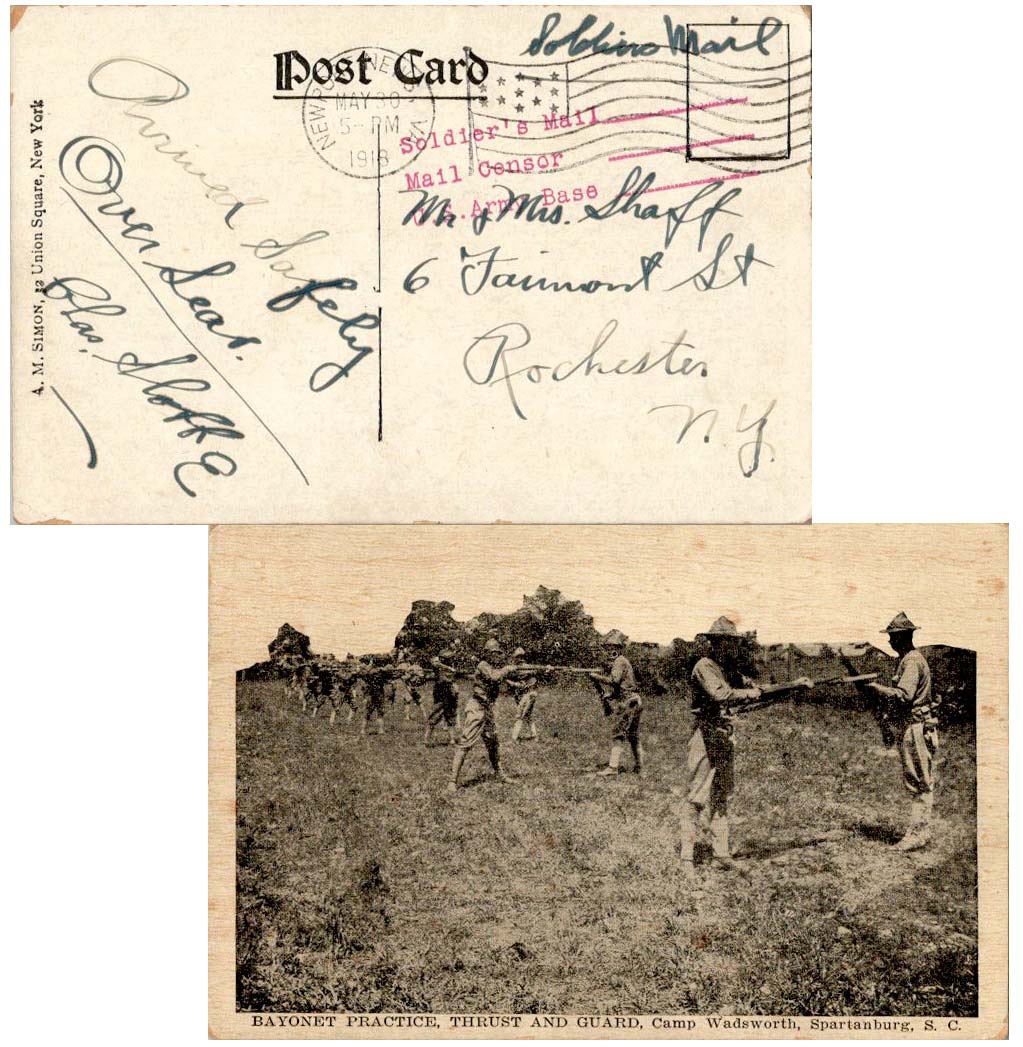 Soldiers Mail
Post Card
NEWPORT NEWS, VA
MAY 30
5-PM
1918
Soldier's Mail
Mail Censor
U.S. Army Base
Mr & Mrs. Shaff
6 Fairmont St
Rochester
N.Y.
Arrived Safely
Over Seas.
Chas. Shaff
A. M. SIMON, 32 Union Square, New York
BAYONET PRACTICE, THRUST AND GUARD, Camp Wadsworth, Spartanburg, S. C.